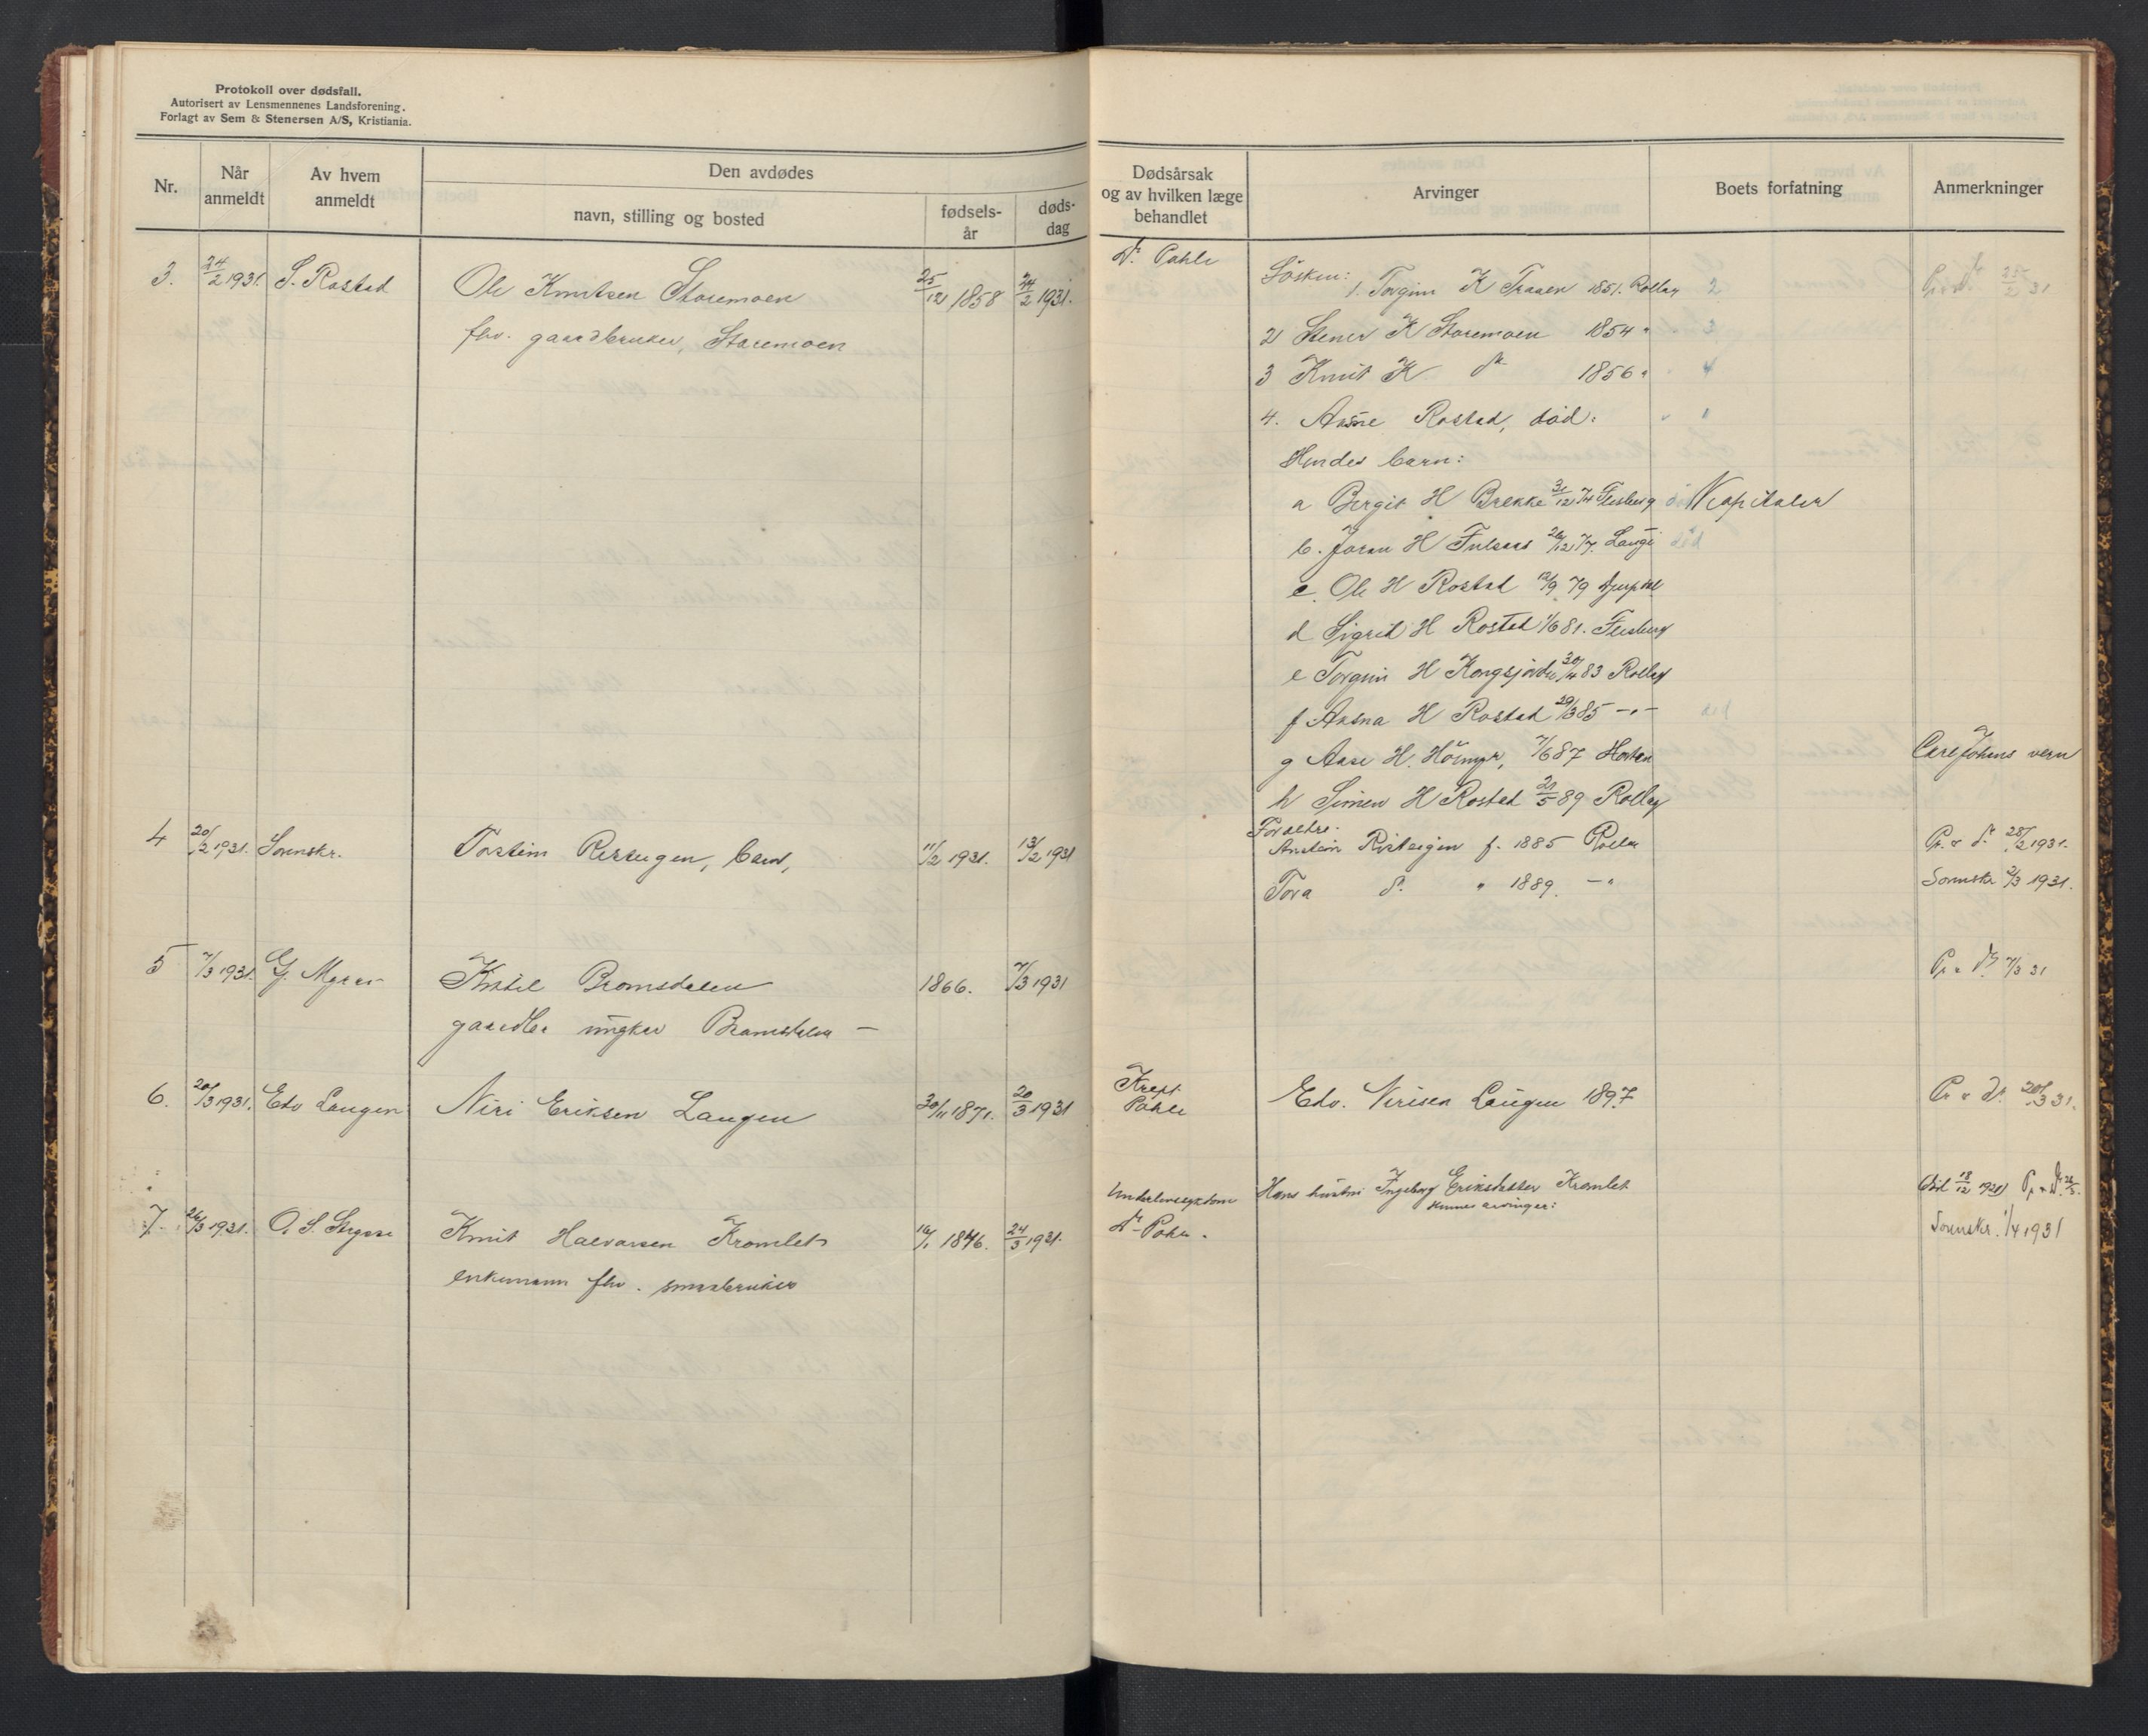 Protokoll over dødsfall.
Autorisert av Lensmennenes Landsforening.
Forlagt av Sem & Stenersen A/S, Kristiania.
Nr.
Når anmeldt
Av hvem anmeldt
Den avdødes
navn, stilling og bosted
fødsels-år
døds-dag
Dødsårsak og av hvilken læge behandlet
Arvinger
Boets forfatning
Anmerkninger
3. 24/2 1931. S. Rostad Ole Knutsen Staremoen 25/12 1858 24/2 1931.
fhv. gaardbruker, Staremoen
Dr. Pahle
Søsken:
1. Torgim K Traaen 1851. Rollag 2
2) Stener K Staremoen 1854 " 3
3 Knut K do 1856 " 4
4. Aasne Rostad, død. 1
Hendes barn:
a Bergit H Brekke 31/12 74 Flesberg død N kapitaler
b. Joran H Fulsaas 26/12 77. død
c. Ole H Rostad 12/9 79
d Sigrid H Rostad 1/6 81. Flesberg
e Torgim H Kongsjorde 30/4 83 Rollag
f. Aasna H Rostad 29/3 85 -"- død
g Aase H. 7/6 87 Horten
h Simen H Rostad 21/5 89 Rollag
Pr. 25/2 31
Carl Johans vern
4 20/2 1931. Sorenskr. Torstein barn, 11/2 1931. 13/2 1931
Foraldre.
Anstein f. 1885 Rollag
Tora do. " 1889. -"
Pr. 28/2 1931.
Sorenskr 2/3 1931.
5 7/3 1931. G. Myran Kittil Bromsdalen 1866. 7/3 1931
gaardbr ungkar Bromsdalen -
Pr. 7/3 31
6. 20/3 1931. Edv Laugen Niri Eriksen Laugen 30/11 1871. 20/3 1931
Kreft
Pahle
Edv. Nirisen Laugen 1897
Pr. 20/3 31.
7. 26/3 1931. O. S. Knut Halvorsen Kromlet 16/1 1846. 24/3 1931.
enkemann fhv. smaabruker
Underlivssykdom
Dr. Pahle.
Hans hustru Ingeborg Eriksdatter Kromlet
hennes arvinger:
død 18/12 1921) Pr. 26/3.
Sorenskr. 1/4 1931